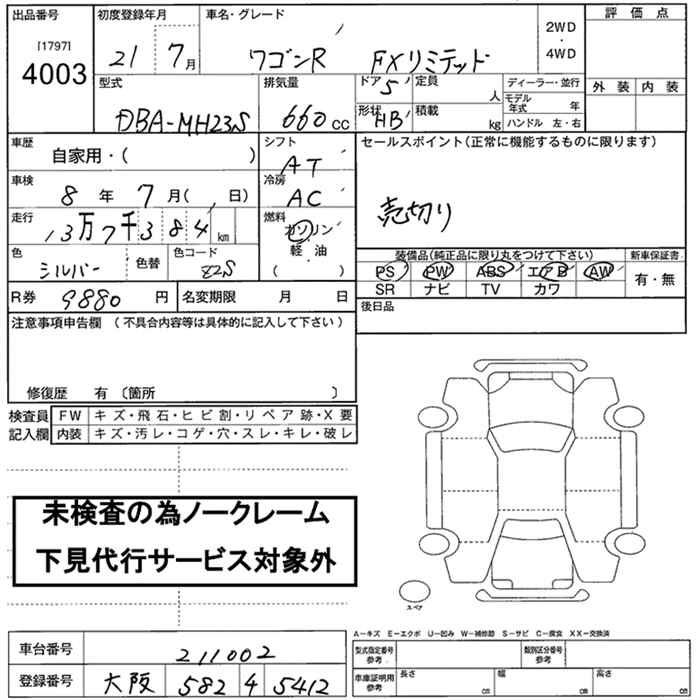 出品番号 初度登録年月 車名・グレード 2WD・4WD 評価点
[1797] 4003 21年 7月 ワゴンR FXリミテッド
型式 排気量 ドア 5 定員 人 ディーラー・並行 外装 内装
DBA-MH23S 660 CC 形状 HB 積載 kg モデル年式 年
ハンドル 左・右
車歴 自家用・( ) シフト AT セールスポイント(正常に機能するものに限ります)
車検 8年 7月( 日) 冷房 AC 売切り
走行 13万7千384km 燃料 ガソリン
軽・油
( )
色 シルバー 色替 色コード Z2S 装備品(純正品に限り丸をつけて下さい) 新車保証書
PS PW ABS エアB AW 有・無
SR ナビ TV カワ
R券 9880円 名変期限 月 日 後日品
注意事項申告欄 (不具合内容等は具体的に記入して下さい)
修復歴 有 〔箇所 〕
検査員 FW キズ・飛石・ヒビ割・リペア跡・X要
記入欄 内装 キズ・汚レ・コゲ・穴・スレ・キレ・破レ
未検査の為ノークレーム
下見代行サービス対象外
スペア
A-キズ E-エクボ U-凹み W-補修跡 S-サビ C-腐食 XX-交換済
車台番号 211002 型式指定番号 参考 類別区分番号 参考
登録番号 大阪 582 4 5412 車庫証明用 参考 長さ cm 幅 cm 高さ cm